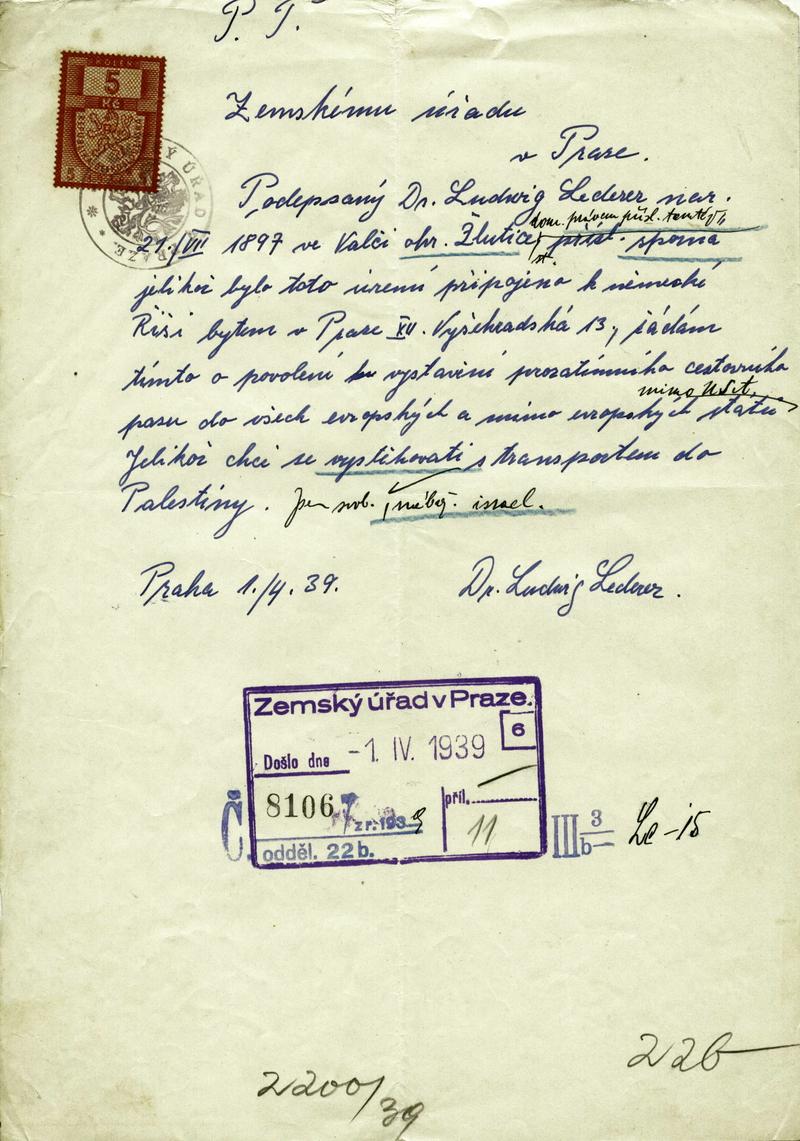 P. T.
KOLEK
5
Kč
5
Zemskému úřadu
v Praze.
Podepsaný Dr. Ludwig Lederer nar.
dom. právem přísl. tamtéž
21./VII 1897 ve Valči okr. Žlutice, přísl.
st.
jelikož bylo toto území připojeno k německé
Říši bytem v Praze XII. Vyšehradská 13, žádám
tímto o povolení ku vystavení prozatímního cestovního
mimo USA,
pasu do všech evropských a mimo evropských států
Jelikož chci se vystěhovati s transportem do
Palestiny. Jsem svob., nábož. israel.
Praha 1./4. 39.
Dr. Ludwig Lederer.
Zemský úřad v Praze.
6
Došlo dne -1. IV. 1939
Č. 81067 z r. 1939
příl.
11
odděl. 22 b.
III 3
b
Le-15
22b
2200/39